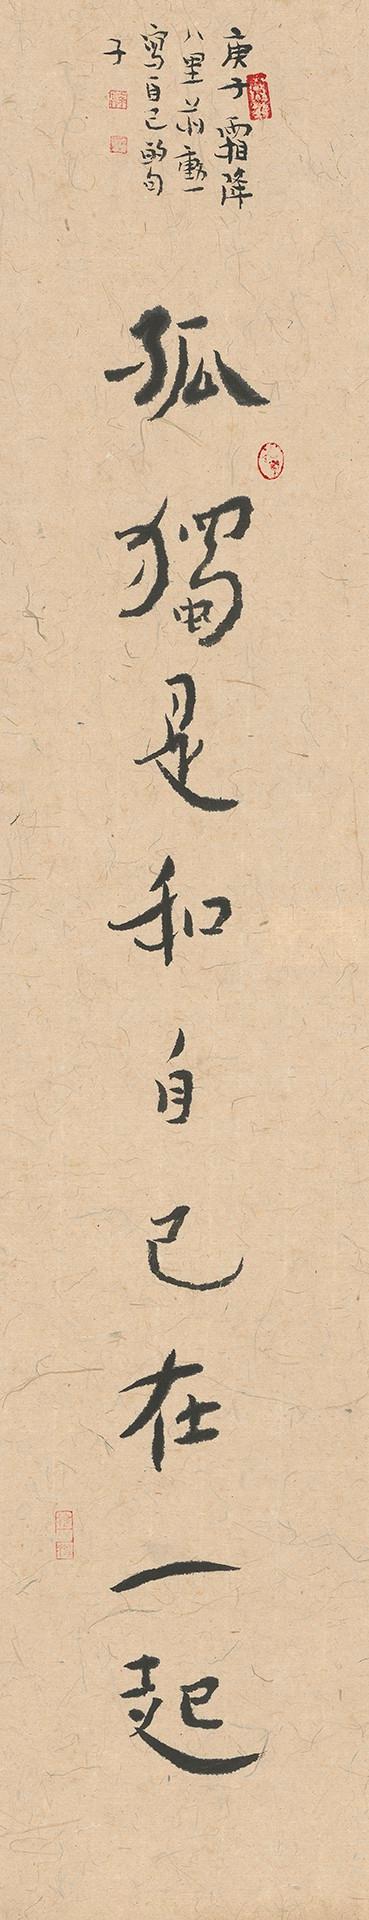 庚子霜降
八里蔣勳
寫自己的句
子
孤獨是和自己在一起